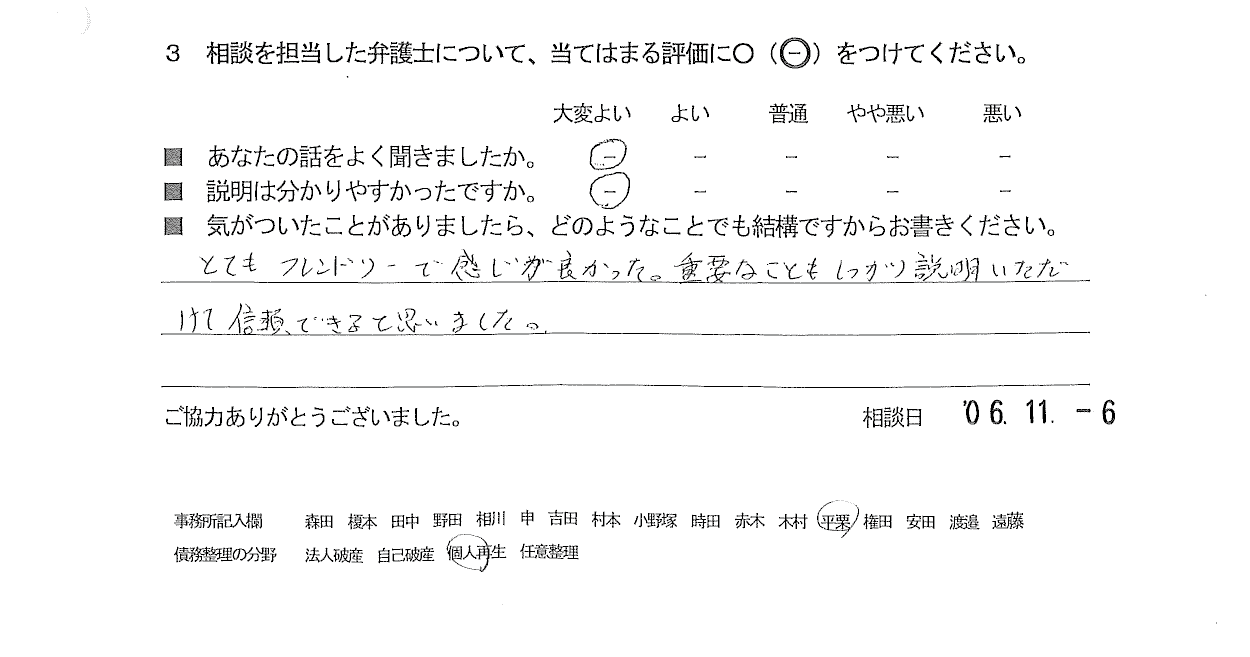 3 相談を担当した弁護士について、当てはまる評価に〇（㊀）をつけてください。
大変よい よい 普通 やや悪い 悪い
■ あなたの話をよく聞きましたか。 － － － － －
■ 説明は分かりやすかったですか。 － － － － －
■ 気がついたことがありましたら、どのようなことでも結構ですからお書きください。
とてもフレンドリーで感じが良かった。重要なこともしっかり説明いただ
けて信頼できると思いました。
ご協力ありがとうございました。 相談日 '06.11.-6
事務所記入欄 森田 榎本 田中 野田 相川 申 吉田 村本 小野塚 時田 赤木 木村 平栗 権田 安田 渡邉 遠藤
債務整理の分野 法人破産 自己破産 個人再生 任意整理